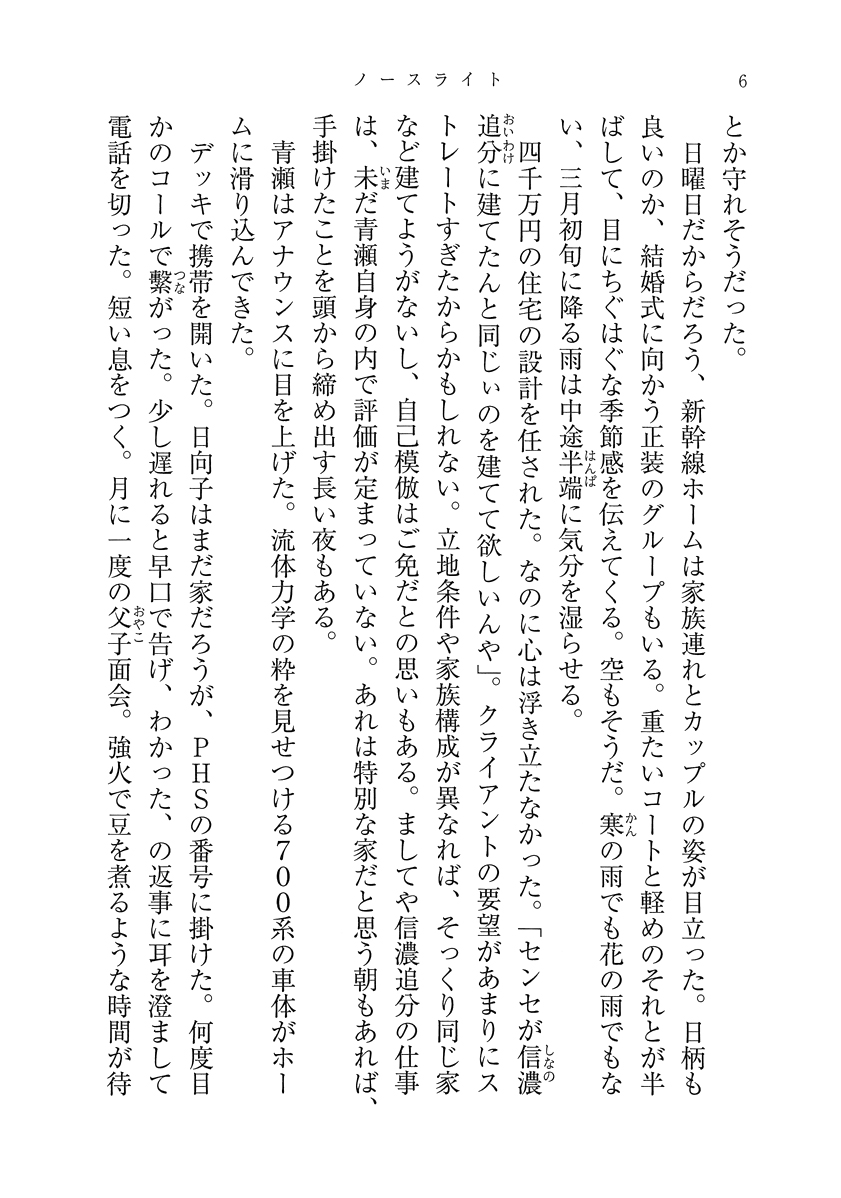 ノースライト
6
とか守れそうだった。
日曜日だからだろう、新幹線ホームは家族連れとカップルの姿が目立った。日柄も
良いのか、結婚式に向かう正装のグループもいる。重たいコートと軽めのそれとが半
ばして、目にちぐはぐな季節感を伝えてくる。空もそうだ。寒の雨でも花の雨でもな
かん
い、三月初旬に降る雨は中途半端に気分を湿らせる。
はんぱ
四千万円の住宅の設計を任された。なのに心は浮き立たなかった。「センセが信濃
しなの
追分に建てたんと同じぃのを建てて欲しいんや」。クライアントの要望があまりにス
おいわけ
トレートすぎたからかもしれない。立地条件や家族構成が異なれば、そっくり同じ家
など建てようがないし、自己模倣はご免だとの思いもある。ましてや信濃追分の仕事
は、未だ青瀬自身の内で評価が定まっていない。あれは特別な家だと思う朝もあれば、
いま
手掛けたことを頭から締め出す長い夜もある。
青瀬はアナウンスに目を上げた。流体力学の粋を見せつける700系の車体がホー
ムに滑り込んできた。
デッキで携帯を開いた。日向子はまだ家だろうが、PHSの番号に掛けた。何度目
かのコールで繫がった。少し遅れると早口で告げ、わかった、の返事に耳を澄まして
つな
電話を切った。短い息をつく。月に一度の父子面会。強火で豆を煮るような時間が待
おやこ